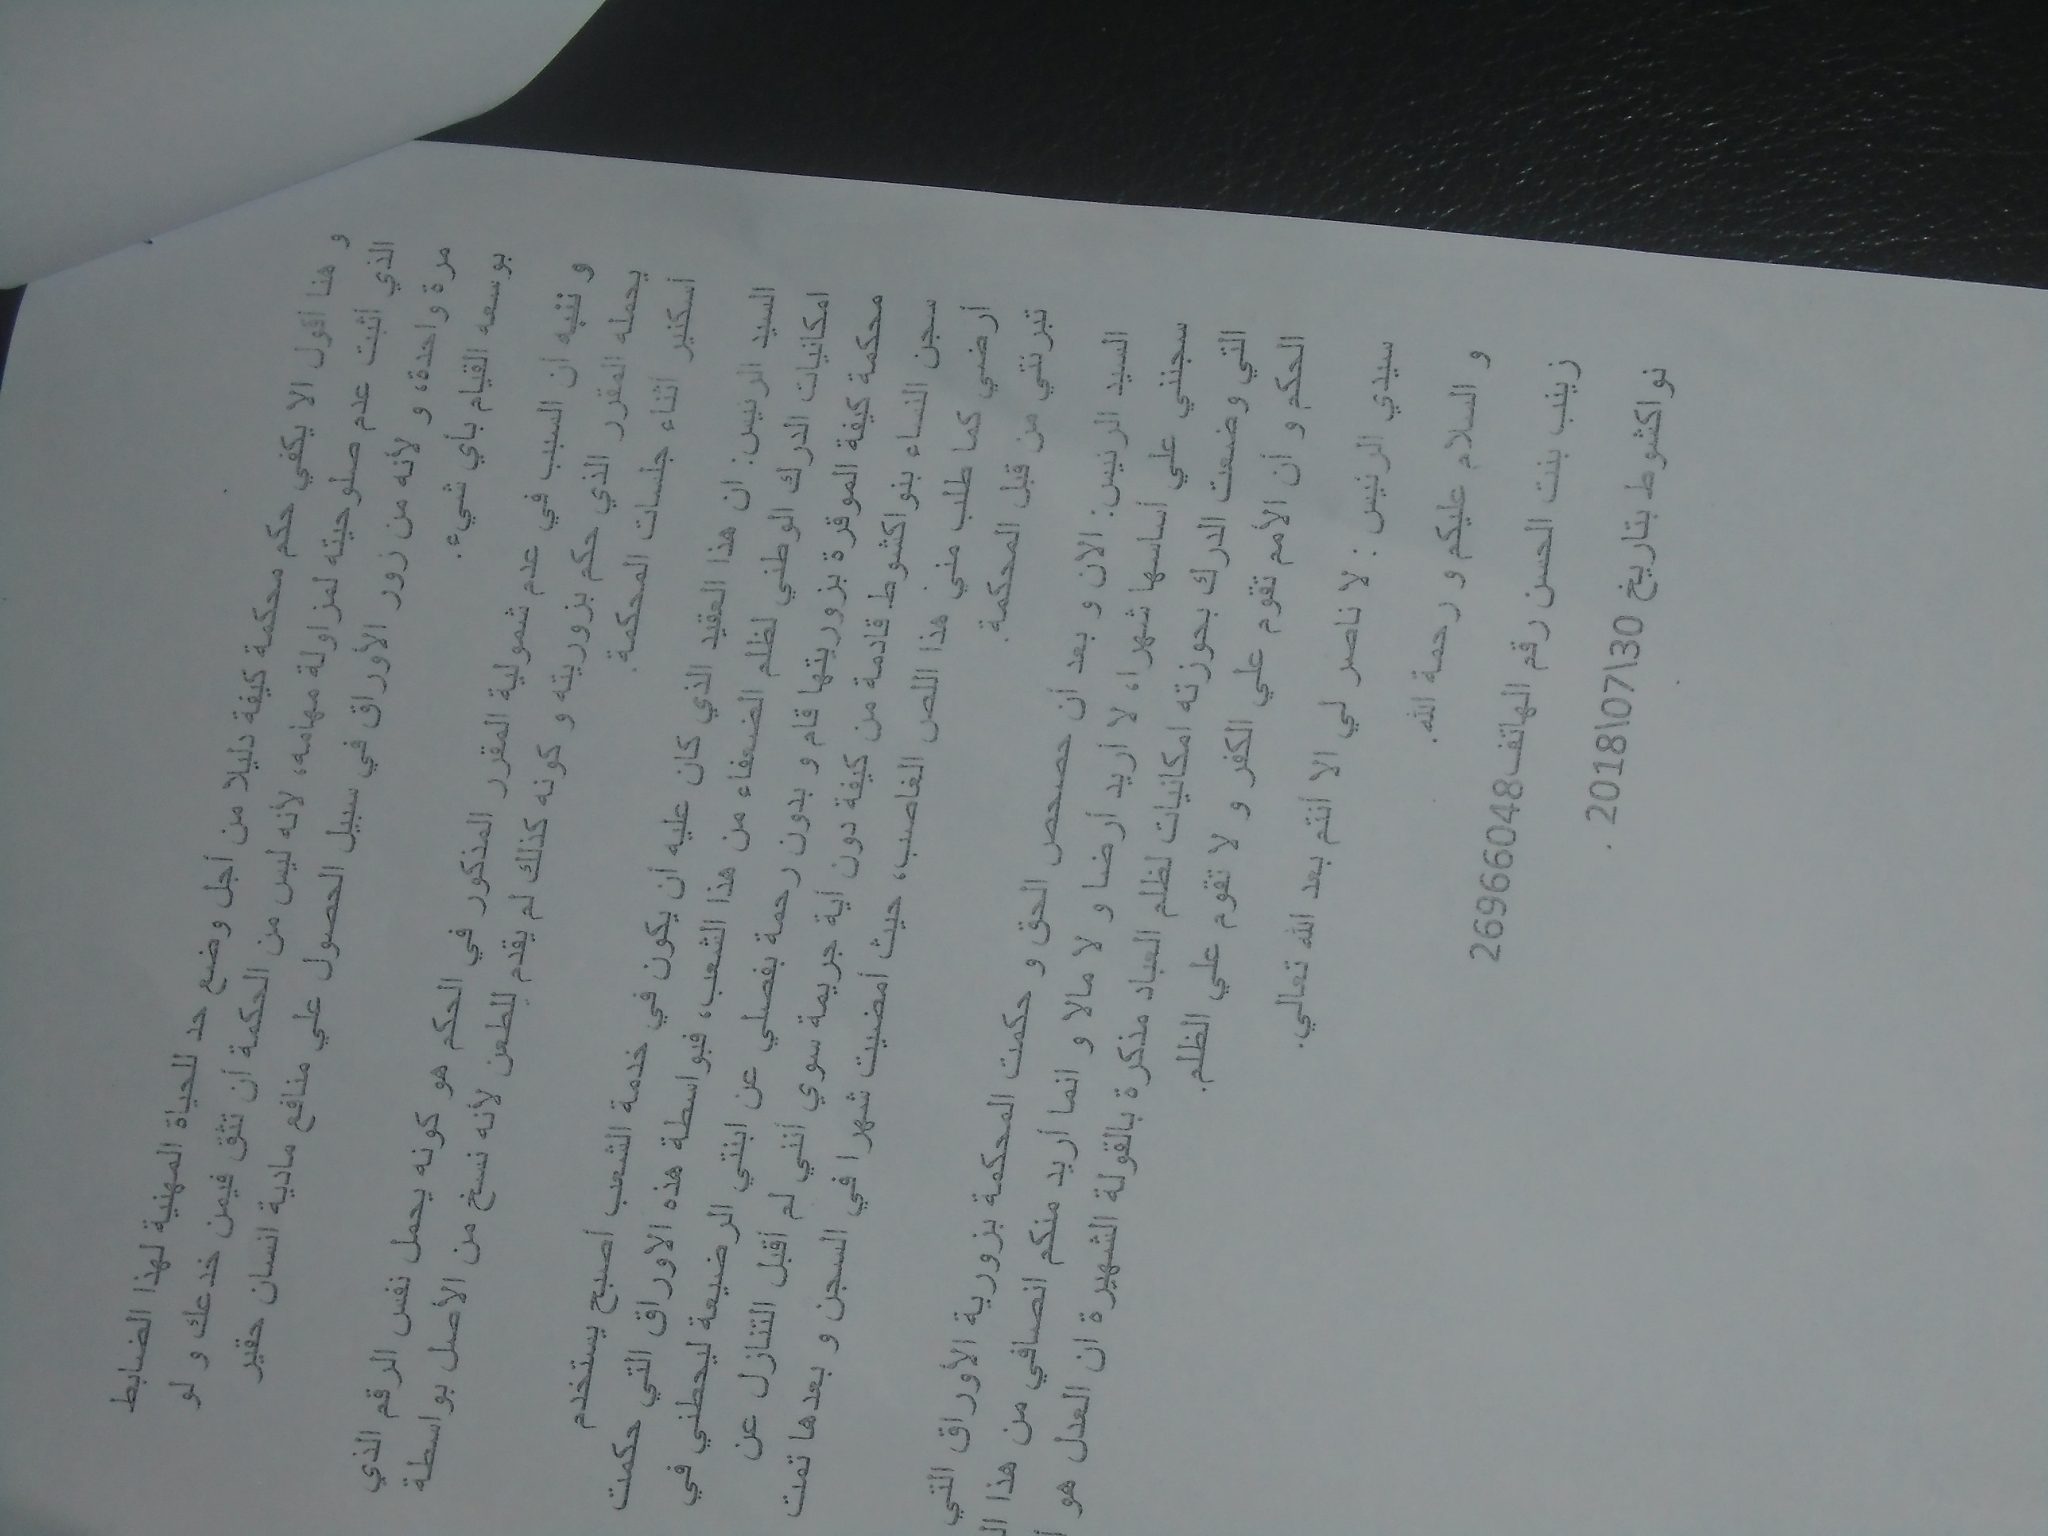 و هنا أقول الا يكفي حكم محكمة كيفة دليلا من أجل وضع حد للحياة المهنية لهذا الضابط
الذي أثبت عدم صلوحيته لمزاولة مهامه، لأنه ليس من الحكمة أن تثق فيمن خدعك و لو
مرة واحدة، و لأنه من زور الأوراق في سبيل الحصول علي منافع مادية انسان حقير
بوسعه القيام بأي شيء.
و ننبه أن السبب في عدم شمولية المقرر المذكور في الحكم هو كونه يحمل نفس الرقم الذي
يحمله المقرر الذي حكم بزوريته و كونه كذلك لم يقدم للطعن لأنه نسخ من الأصل بواسطة
أسكنير أثناء جلسات المحكمة.
السيد الرئيس: ان هذا العقيد الذي كان عليه أن يكون في خدمة الشعب أصبح يستخدم
امكانيات الدرك الوطني لظلم الضعفاء من هذا الشعب، فبواسطة هذه الاوراق التي حكمت
محكمة كيفة الموقرة بزوريتها قام و بدون رحمة بفصلي عن ابنتي الرضيعة ليحطني في
سجن النساء بنواكشوط قادمة من كيفة دون أية جريمة سوي أنني لم أقبل التنازل عن
أرضي كما طلب مني هذا اللص الغاصب، حيث أمضيت شهرا في السجن و بعدها تمت
تبرئتي من قبل المحكمة.
السيد الرئيس: الان و بعد أن حصحص الحق و حكمت المحكمة بزورية الأوراق التي
سجنني علي أساسها شهرا، لا أريد أرضا و لا مالا و انما أريد منكم انصافي من هذا
التي وضعت الدرك بحوزته امكانيات لظلم العباد مذكرة بالقولة الشهيرة ان العدل هو
الحكم و أن الأمم تقوم علي الكفر و لا تقوم علي الظلم.
سيدي الرئيس : لا ناصر لي الا أنتم بعد الله تعالي.
و السلام عليكم و رحمة الله.
زينب بنت الحسن رقم الهاتف26966048
نواكشوط بتاريخ 30\07\2018 .